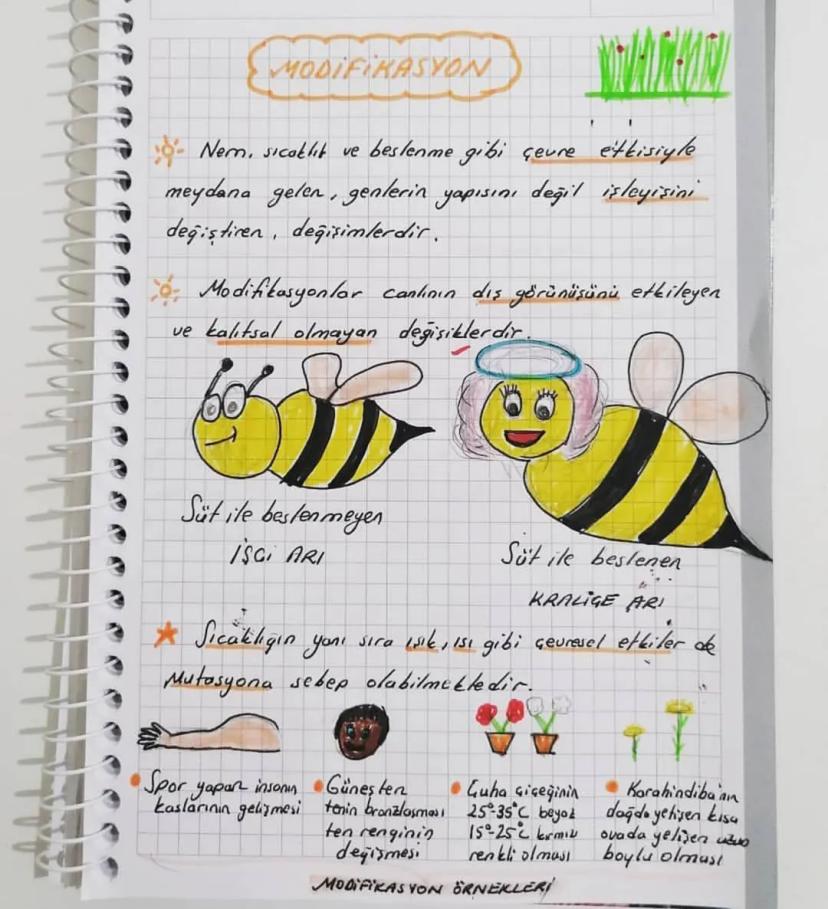 MODİFİKASYON
Nem, sıcaklık ve beslenme gibi çevre etkisiyle
meydana gelen, genlerin yapısını değil işleyişini
değiştiren, değişimlerdir.
Modifikasyonlar canlının dış görünüşünü etkileyen
ve kalıtsal olmayan değişiklerdir.
Süt ile beslenmeyen
İŞÇİ ARI
Süt ile beslenen
KRALİÇE ARI
Sıcaklığın yanı sıra ışık, ısı gibi çevresel etkiler de
Mutasyona sebep olabilmektedir.
Spor yapan insanın
kaslarının gelişmesi
Güneşten
tenin bronzlaşması
ten renginin
değişmesi
Çuha çiçeğinin
25°-35°C beyaz
15°-25°C kırmızı
renkli olması
Karahindiba'nın
dağda yetişen kısa
ovada yetişen uzun
boylu olması
MODİFİKASYON ÖRNEKLERİ